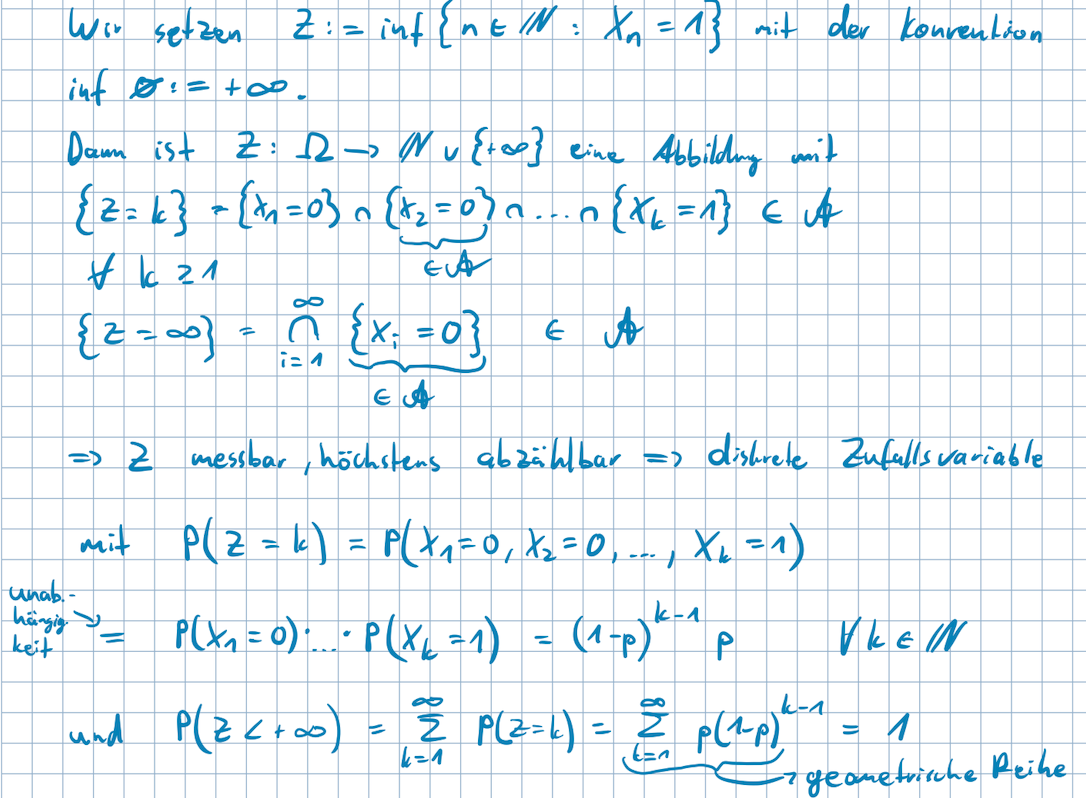 Wir setzen Z := inf {n ∈ ℕ : Xₙ = 1} mit der Konvention
inf ∅ := +∞.
Dann ist Z : Ω → ℕ ∪ {+∞} eine Abbildung mit
{Z = k} = {X₁ = 0} ∩ {X₂ = 0} ∩ ... ∩ {X_k = 1} ∈ 𝒜
∈ 𝒜
∀ k ≥ 1
{Z = ∞} = ⋂_{i=1}^{∞} {X_i = 0} ∈ 𝒜
∈ 𝒜
=> Z messbar, höchstens abzählbar => diskrete Zufallsvariable
mit P(Z = k) = P(X₁ = 0, X₂ = 0, ..., X_k = 1)
unab.-
hängig.
keit
= P(X₁ = 0) · ... · P(X_k = 1) = (1-p)^{k-1} p ∀ k ∈ ℕ
und P(Z < +∞) = ∑_{k=1}^{∞} P(Z=k) = ∑_{k=1}^{∞} p(1-p)^{k-1} = 1
→ geometrische Reihe